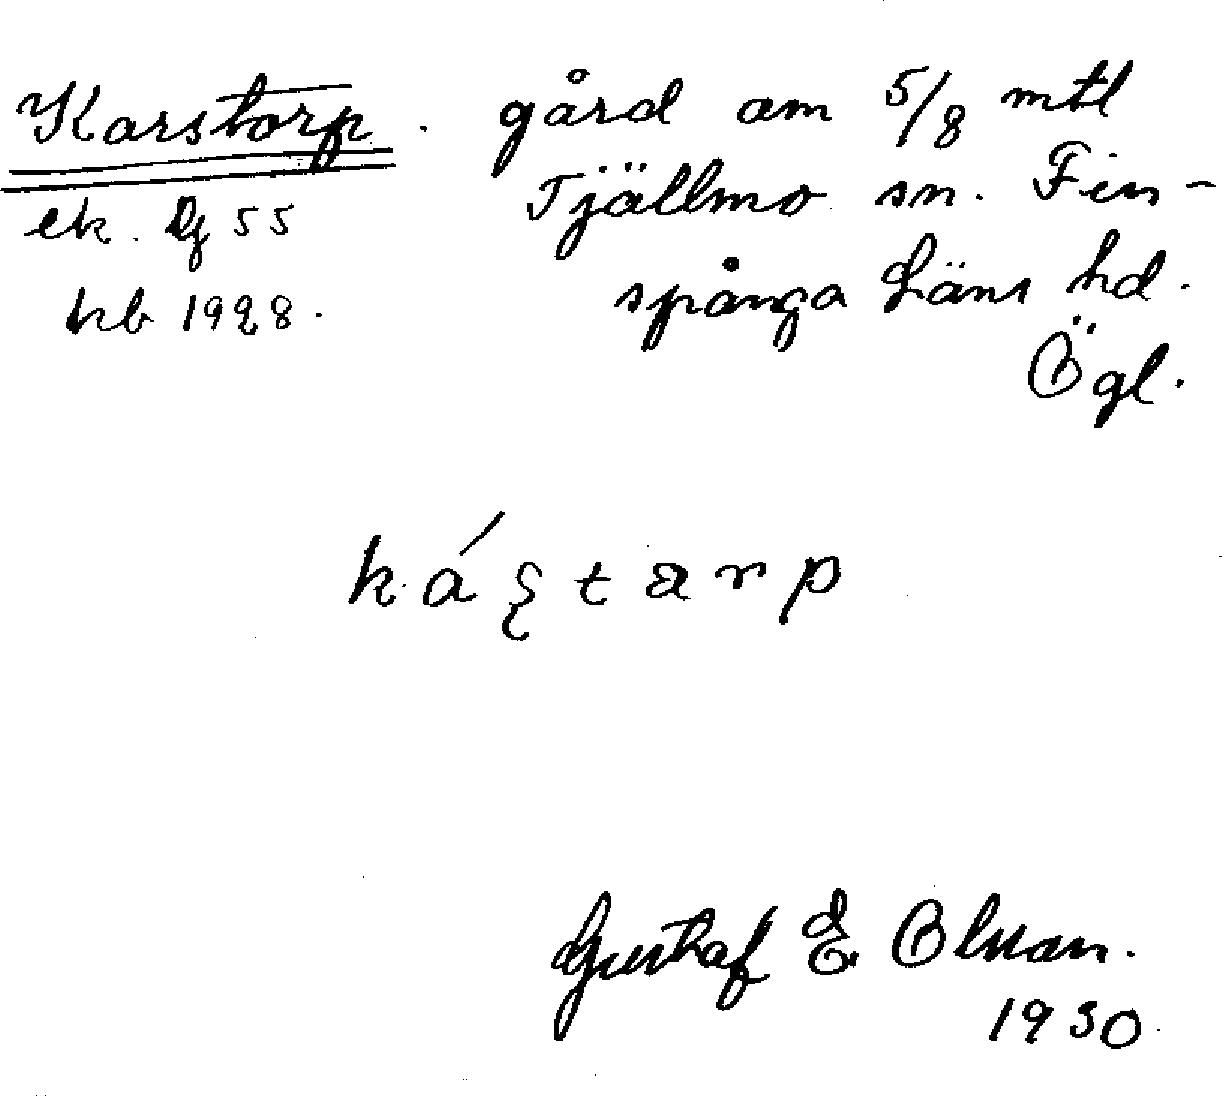 Karstorp. gård om 5/8 mtl
ek. Dj 55 Tjällmo sn. Fin-
hb 1928. spånga läns hd.
Ögl.
káştarp
Gustaf E Olsson.
1930